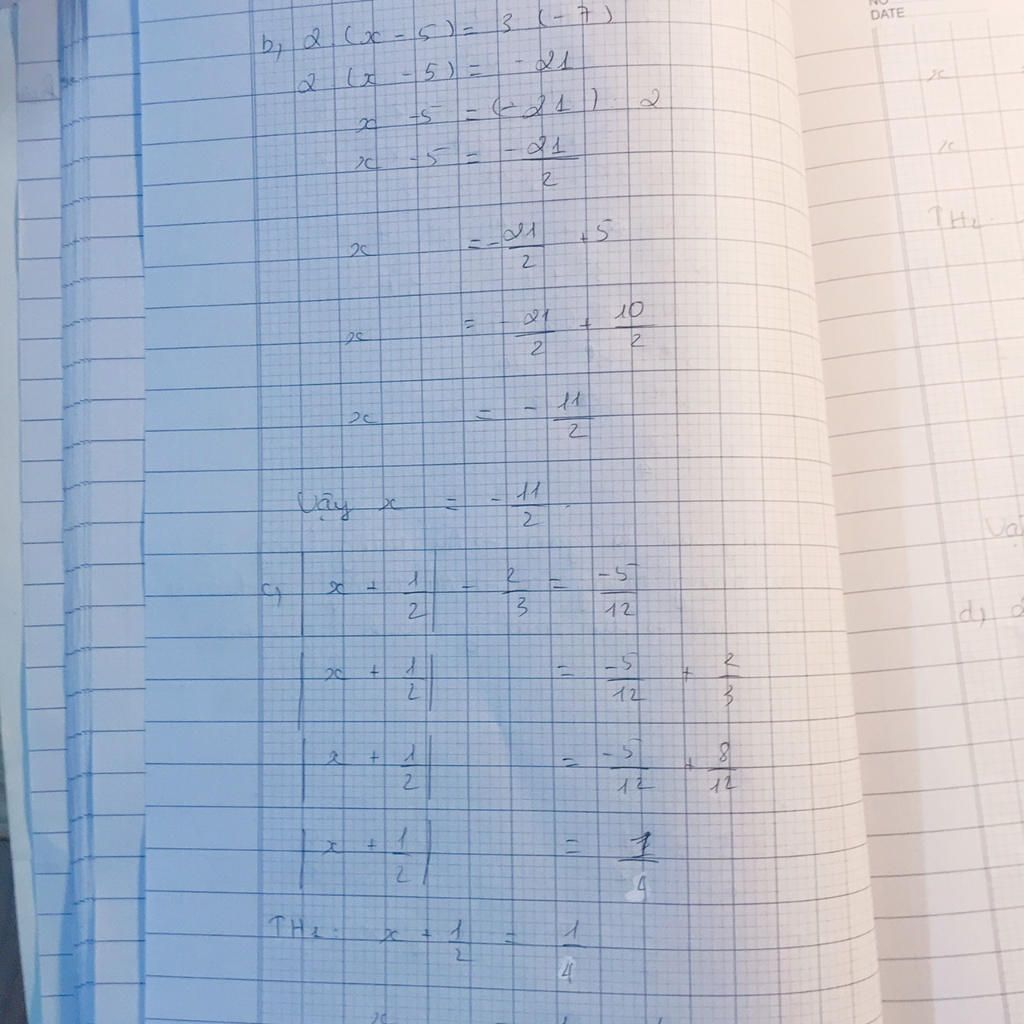 NO
DATE
b, 2 (x - 5) = 3 (-7)
2 (x - 5) = -21
x - 5 = (-21) : 2
x - 5 = -21/2
x = -21/2 + 5
x = -21/2 + 10/2
x = -11/2
Vậy x = -11/2
c, |x + 1/2| - 2/3 = -5/12
|x + 1/2| = -5/12 + 2/3
|x + 1/2| = -5/12 + 8/12
|x + 1/2| = 1/4
TH1: x + 1/2 = 1/4
x
x
TH2:
d,